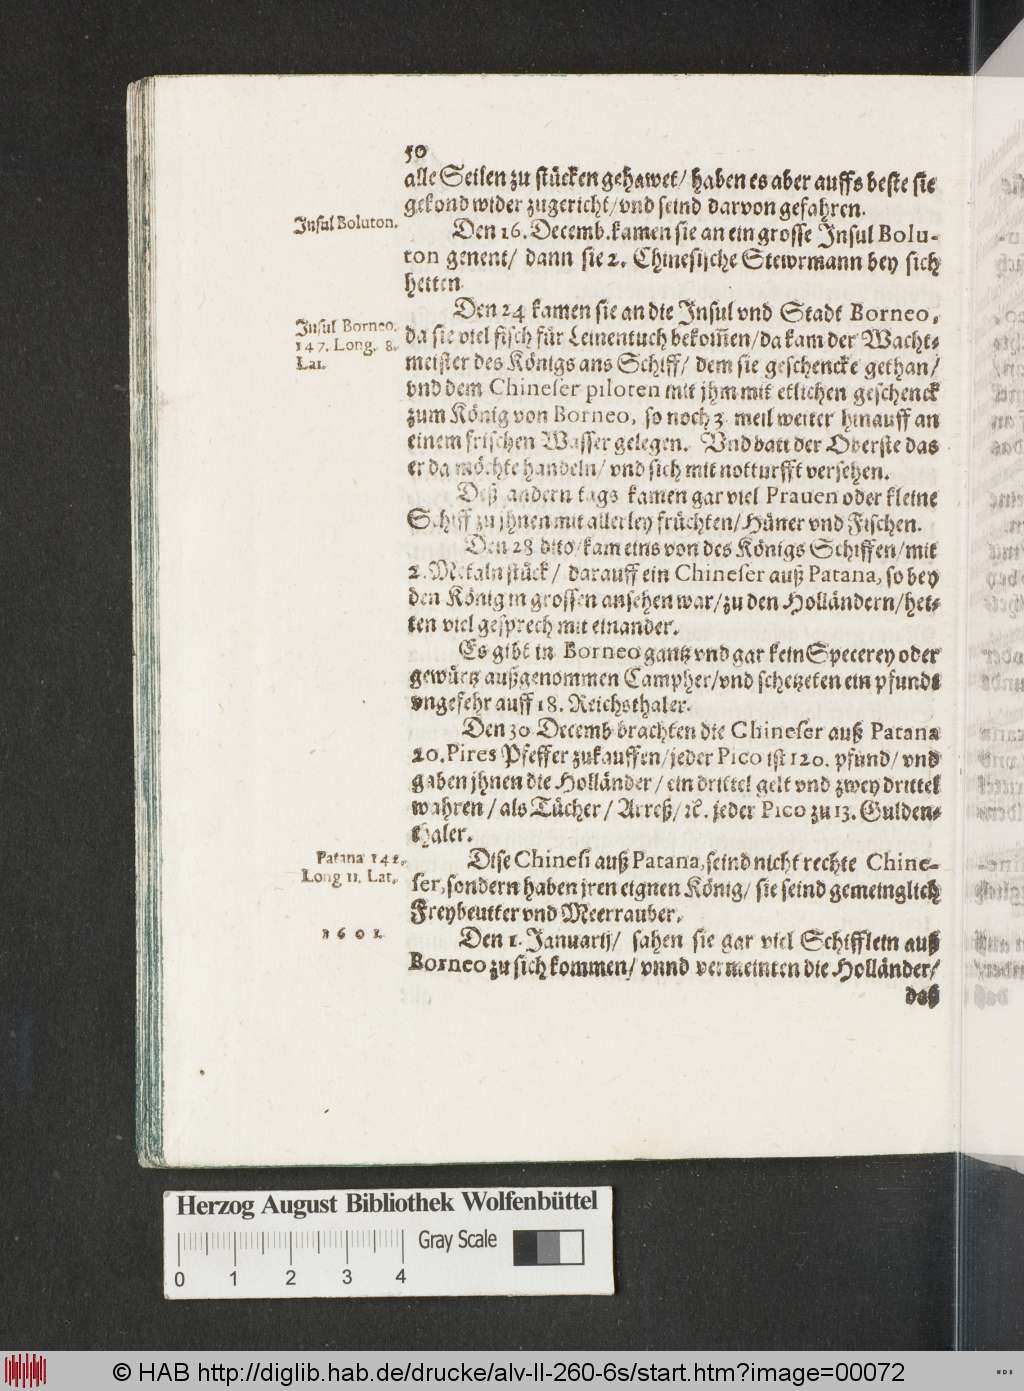 50
alle Seilen zu stücken gehawet/ haben es aber auffs beste sie
gekond wider zugericht/ vnd seind darvon gefahren.
Insul Boluton.
Den 16. Decemb. kamen sie an ein grosse Insul Bolu-
ton genent/ dann sie 2. Chinesische Stewrmann bey sich
hetten.
Insul Borneo.
147. Long. 8.
Lat.
Den 24 kamen sie an die Insul vnd Stadt Borneo,
da sie viel fisch für Leinentuch bekom̃en/ da kam der Wacht-
meister des Königs ans Schiff/ dem sie geschencke gethan/
vnd dem Chineser piloten mit jhm mit etlichen geschenck
zum König von Borneo, so noch 3. meil weiter hinauff an
einem frischen Wasser gelegen. Vnd batt der Oberste das
er da möchte handeln/ vnd sich mit notturfft versehen.
Deß andern tags kamen gar viel Prauen oder kleine
Schiff zu jhnen mit allerley früchten/ Hüner vnd Fischen.
Den 28 dito/ kam eins von des Königs Schiffen/ mit
2. Metaln stück/ darauff ein Chineser auß Patana, so bey
den König in grossen ansehen war/ zu den Holländern/ het-
ten viel gesprech mit einander.
Es gibt in Borneo gantz vnd gar kein Specerey oder
gewürtz außgenommen Campher/ vnd schetzeten ein pfundt
vngefehr auff 18. Reichsthaler.
Den 30 Decemb brachten die Chineser auß Patana
20. Pires Pfeffer zukauffen/ jeder Pico ist 120. pfund/ vnd
gaben jhnen die Holländer/ ein drittel gelt vnd zwey drittel
wahren/ als Tücher/ Arreß/ ꝛc. jeder Pico zu 13. Gulden-
thaler.
Patana 142.
Long 11. Lat.
Dise Chinesi auß Patana, seind nicht rechte Chine-
ser, sondern haben jren eignen König/ sie seind gemeinglich
Freybeutter vnd Meerrauber.
1601.
Den 1. Januarij/ sahen sie gar viel Schifflein auß
Borneo zu sich kommen/ vnnd vermeinten die Holländer/
daß
Herzog August Bibliothek Wolfenbüttel
Gray Scale
0 1 2 3 4
© HAB http://diglib.hab.de/drucke/alv-ll-260-6s/start.htm?image=00072